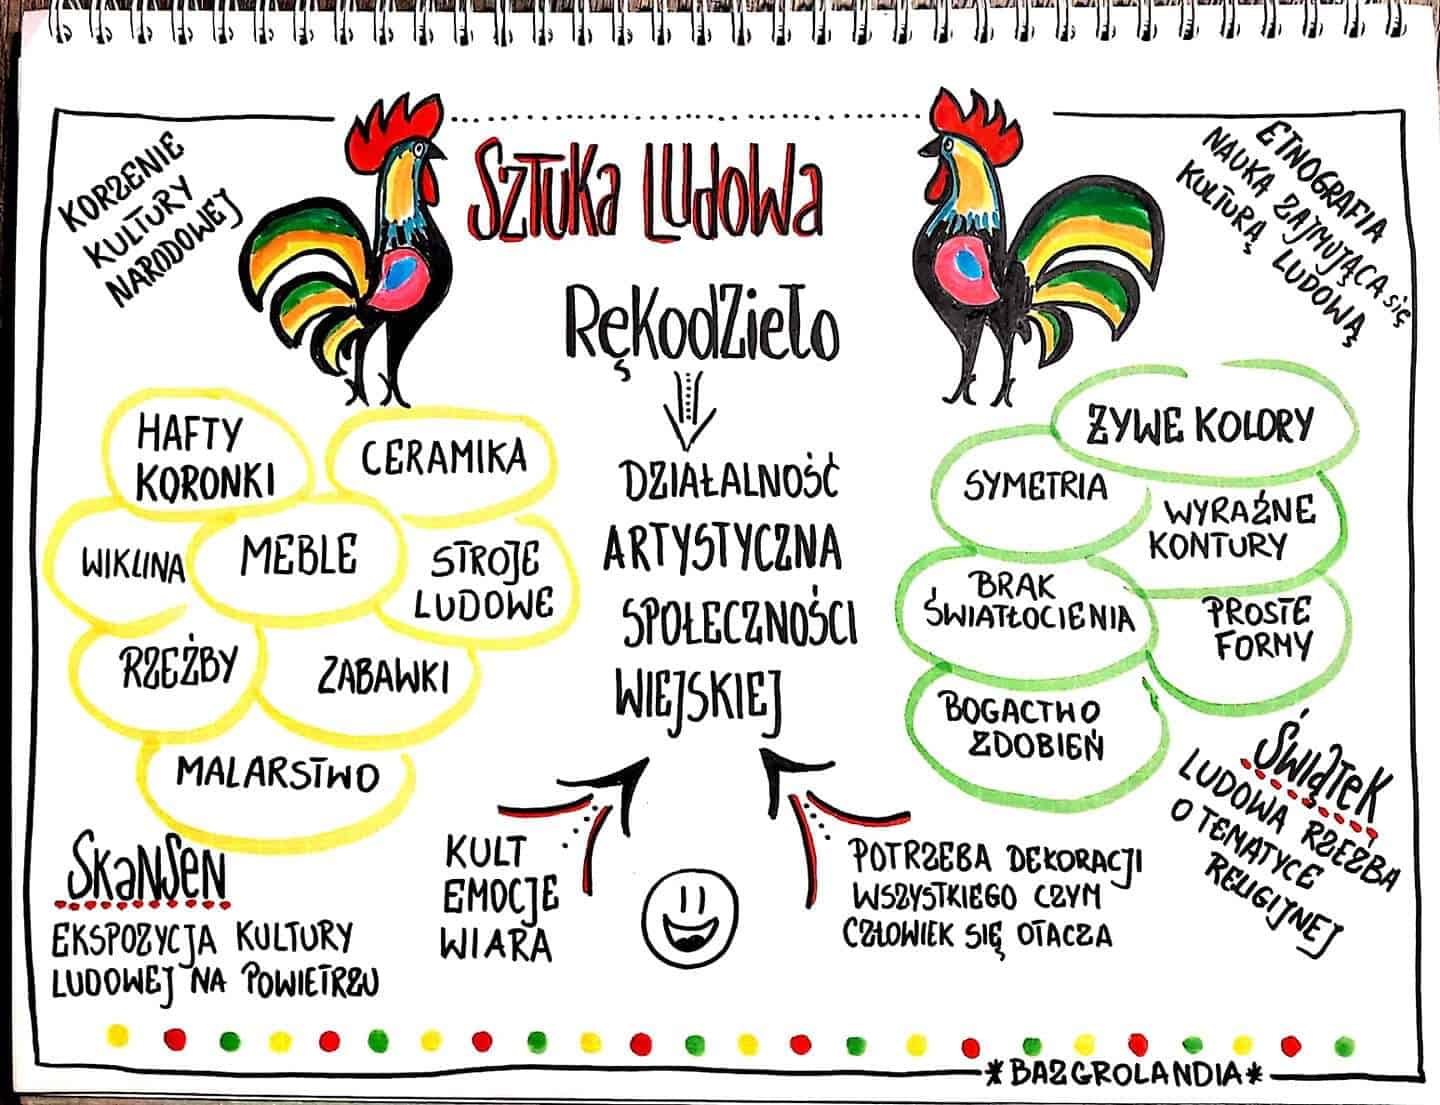 KORZENIE
KULTURY
NARODOWEJ
SZTUKA LUDOWA
RĘKODZIEŁO
ETNOGRAFIA
NAUKA ZAJMUJĄCA się
KULTURĄ LUDOWĄ
HAFTY
KORONKI
CERAMIKA
WIKLINA
MEBLE
STROJE
LUDOWE
RZEŹBY
ZABAWKI
MALARSTWO
DZIAŁALNOŚĆ
ARTYSTYCZNA
SPOŁECZNOŚCI
WIEJSKIEJ
ŻYWE KOLORY
SYMETRIA
WYRAŹNE
KONTURY
BRAK
ŚWIATŁOCIENIA
PROSTE
FORMY
BOGACTWO
ZDOBIEŃ
SKANSEN
EKSPOZYCJA KULTURY
LUDOWEJ NA POWIETRZU
KULT
EMOCJE
WIARA
POTRZEBA DEKORACJI
WSZYSTKIEGO CZYM
CZŁOWIEK SIĘ OTACZA
ŚWIĄTEK
LUDOWA RZEŹBA
O TEMATYCE
RELIGIJNEJ
*BAZGROLANDIA*